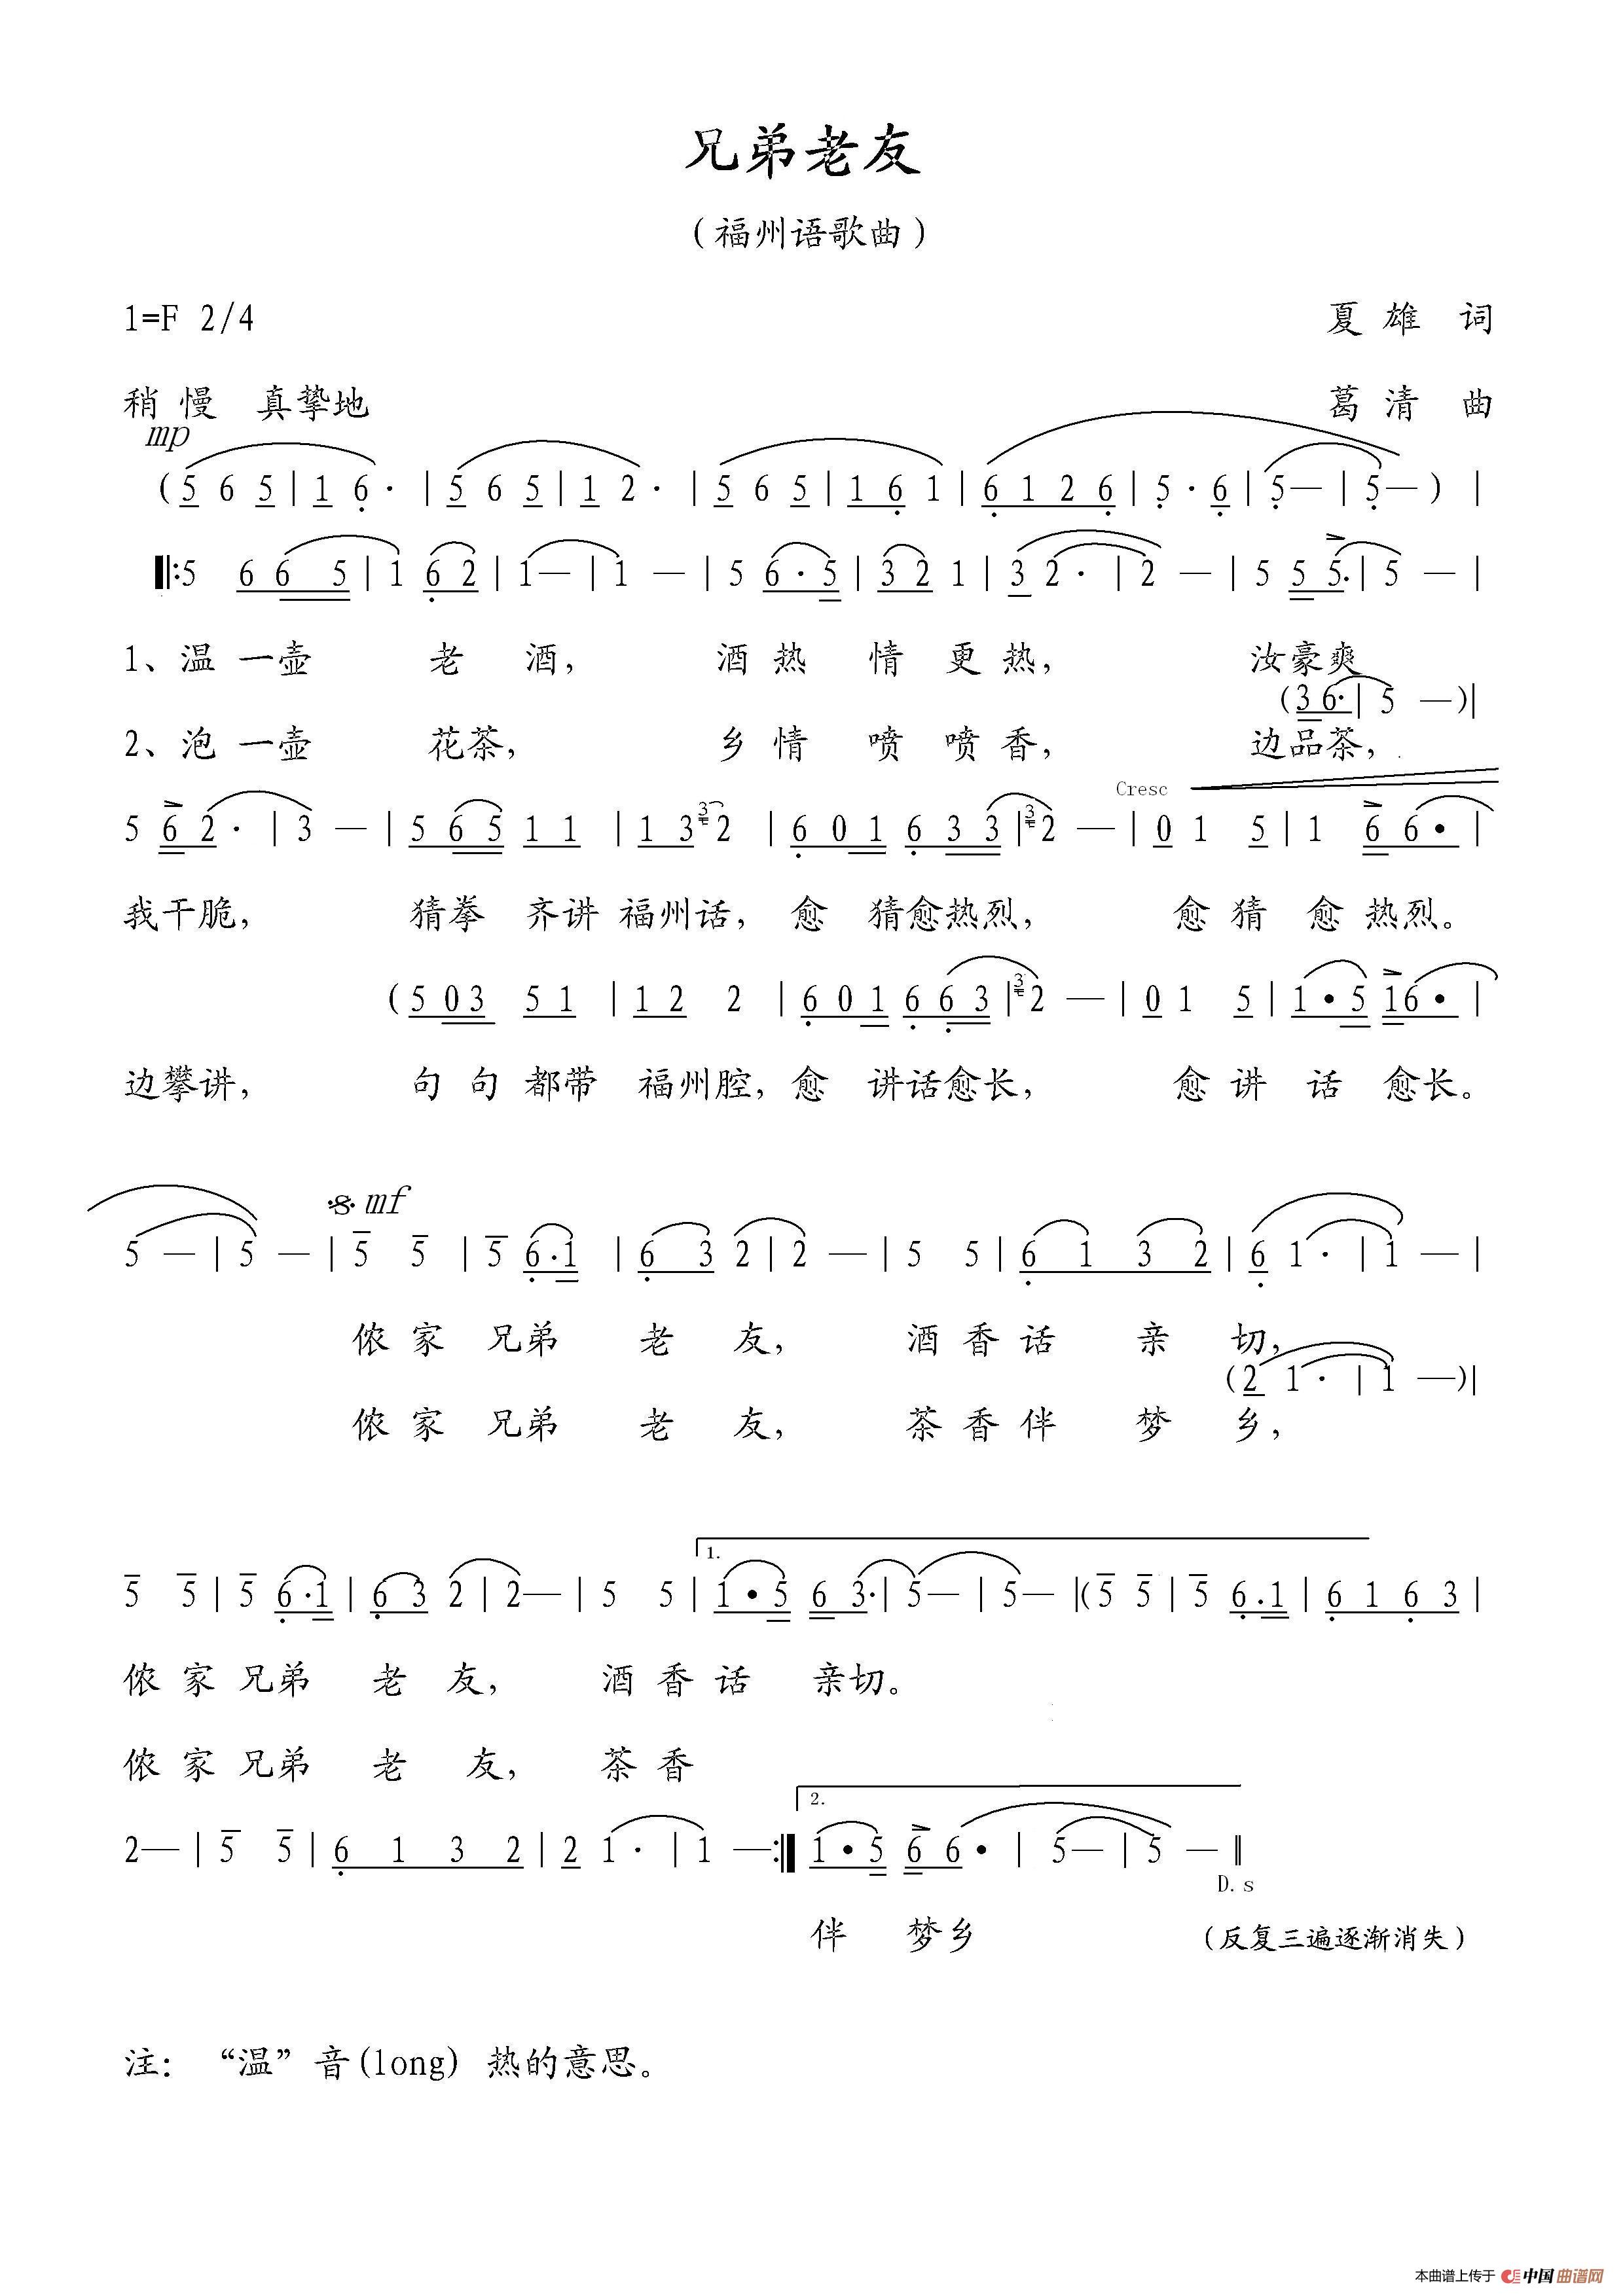 兄弟老友
（福州语歌曲）
1=F 2/4 夏 雄 词
稍 慢 真挚地 葛 清 曲
mp
(5 6 5 | 1 6 · | 5 6 5 | 1 2 · | 5 6 5 | 1 6 1 | 6 1 2 6 | 5 · 6 | 5 — | 5 — ) |
‖: 5 6 6 5 | 1 6 2 | 1 — | 1 — | 5 6 · 5 | 3 2 1 | 3 2 · | 2 — | 5 5 5 · | 5 — |
1、温 一壶 老 酒， 酒 热 情 更 热， 汝豪爽
(3 6 · | 5 — )|
2、泡 一壶 花茶， 乡 情 喷 喷 香， 边品茶，
Cresc
5 6 2 · | 3 — | 5 6 5 1 1 | 1 3 3 2 | 6 0 1 6 3 3 | 3 2 — | 0 1 5 | 1 6 6 · |
我干脆， 猜拳 齐讲 福州话， 愈 猜愈热烈， 愈 猜 愈 热烈。
(5 0 3 5 1 | 1 2 2 | 6 0 1 6 6 3 | 3 2 — | 0 1 5 | 1 · 5 1 6 · |
边攀讲， 句 句 都带 福州腔， 愈 讲话愈长， 愈 讲 话 愈长。
mf
5 — | 5 — | 5 5 | 5 6 · 1 | 6 3 2 | 2 — | 5 5 | 6 1 3 2 | 6 1 · | 1 — |
侬 家 兄弟 老 友， 酒 香 话 亲 切，
(2 1 · | 1 — )|
侬 家 兄弟 老 友， 茶 香 伴 梦 乡，
1.
5 5 | 5 6 · 1 | 6 3 2 | 2 — | 5 5 | 1 · 5 6 3 · | 5 — | 5 — |(5 5 | 5 6 · 1 | 6 1 6 3 |
侬 家 兄弟 老 友， 酒 香 话 亲切。
侬 家 兄弟 老 友， 茶 香
2.
2 — | 5 5 | 6 1 3 2 | 2 1 · | 1 — :‖ 1 · 5 6 6 · | 5 — | 5 — ‖
D.s
伴 梦乡 （反复三遍逐渐消失）
注：“温”音(long) 热的意思。
本曲谱上传于 中国曲谱网